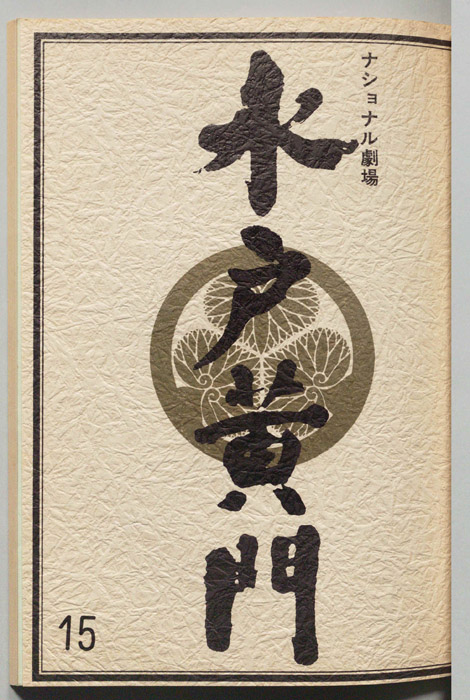 ナショナル劇場
水戸黄門
15